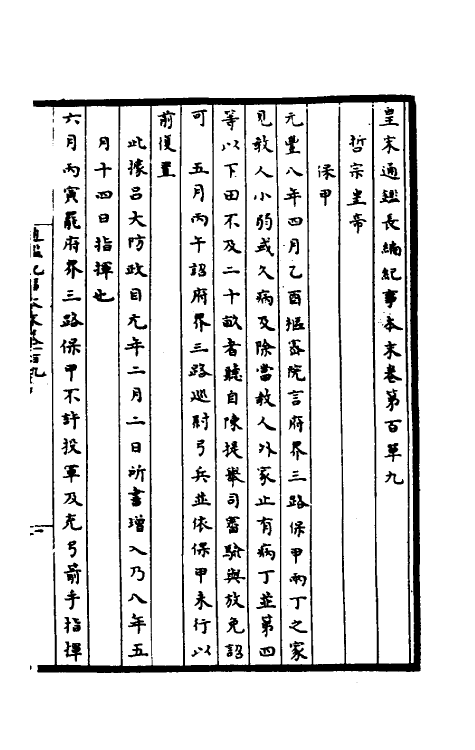 皇宋通鑑長編紀事本末卷第百單九
哲宗皇帝
保甲
元豐八年四月乙酉樞密院言府界三路保甲兩丁之家
見教人小弱或久病及除當教人外家止有病丁並第四
等以下田不及二十畝者聽自陳提舉司審驗與放免詔
可　五月丙午詔府界三路巡尉弓兵並依保甲未行以
前復置
此據呂大防政目元年二月二日所書增入乃八年五
月十四日指揮也
六月丙寅罷府界三路保甲不許投軍及充弓箭手指揮